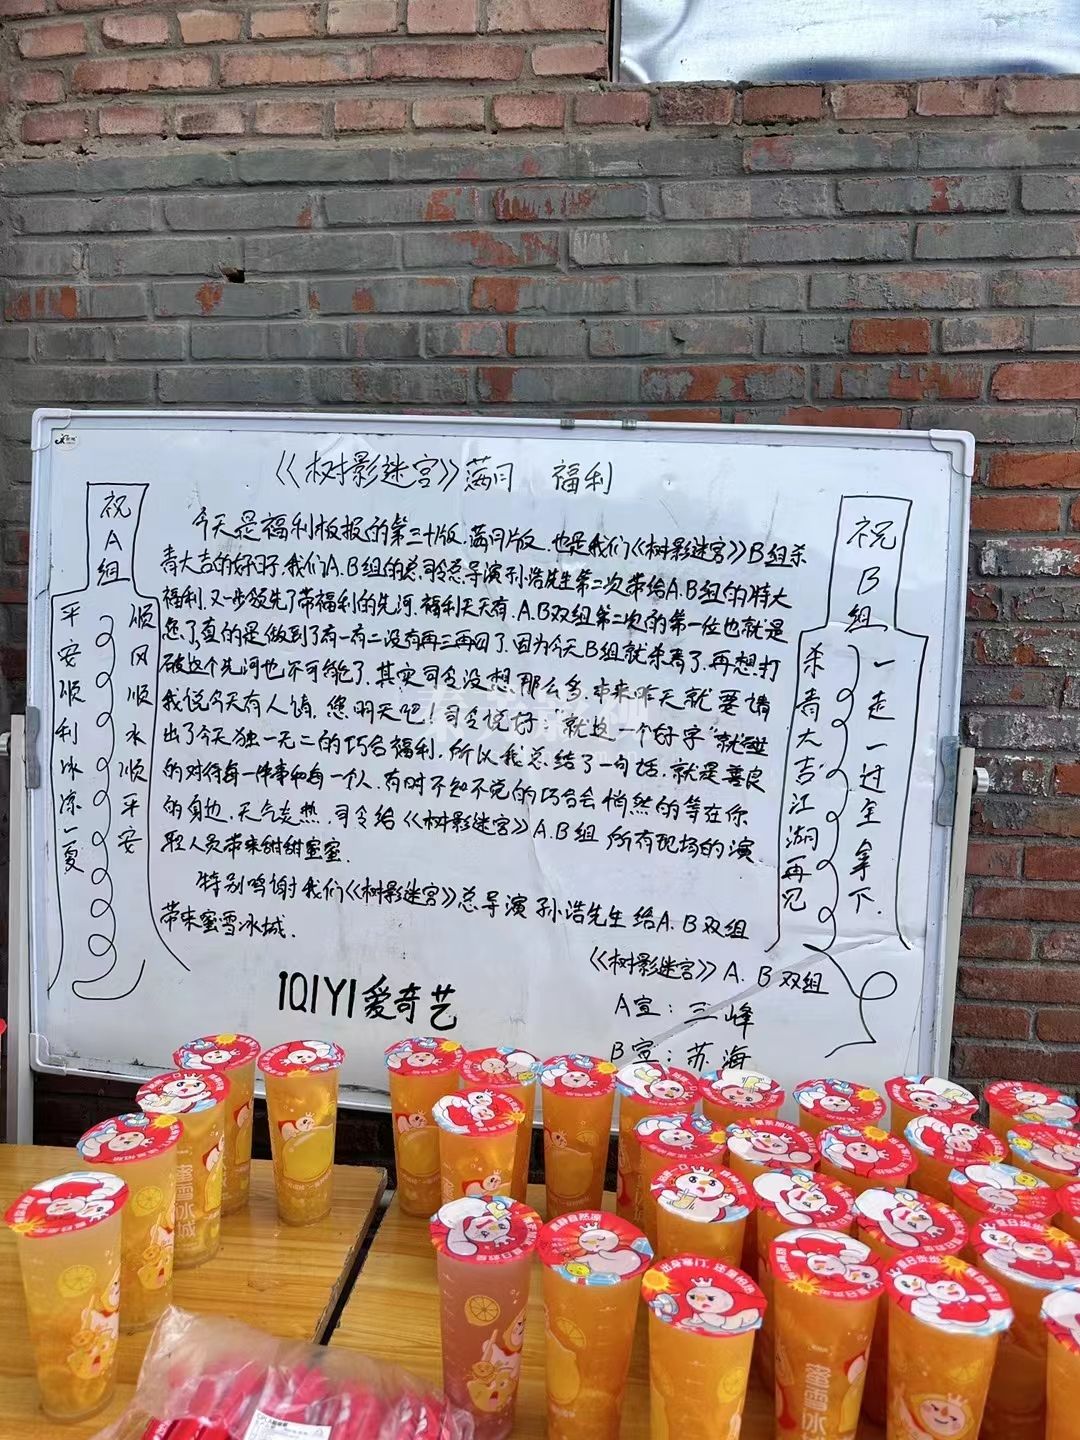 《树影迷宫》满月 福利
祝A组
平安顺利冰冻一夏
顺风顺水顺平安
今天是福利板报的第三十版,满月版,也是我们《树影迷宫》B组杀
青大吉的好日子,我们A.B组的总司令总导演孙浩先生第二次带给A.B组的特大
福利.又一步领先了带福利的先河.福利天天有.A.B双组第二次的第一位也就是
您了真的是做到了有一有二没有再三再四了.因为今天B组就杀青了.再想打
破这个先河也不可能了.其实司令没想那么多,本来昨天就要请
我说今天有人请,您明天吧!司令说好"就这一个好字"就碰
出了今天独一无二的巧合福利.所以我总结了一句话.就是善良
的对待每一件事和每一个人.有时不知不觉的巧合会悄然的等在你
的身边.天气炎热.司令给《树影迷宫》A.B组所有现场的演
职人员带来甜甜蜜蜜.
特别鸣谢我们《树影迷宫》总导演孙浩先生给A.B双组
带来蜜雪冰城.
《树影迷宫》A.B双组
A宣:三峰
B宣:苏海
iQIYI爱奇艺
祝B组
杀青大吉江湖再见
一走一过全拿下.
蜜雪冰城
蜜雪冰城
蜜雪冰